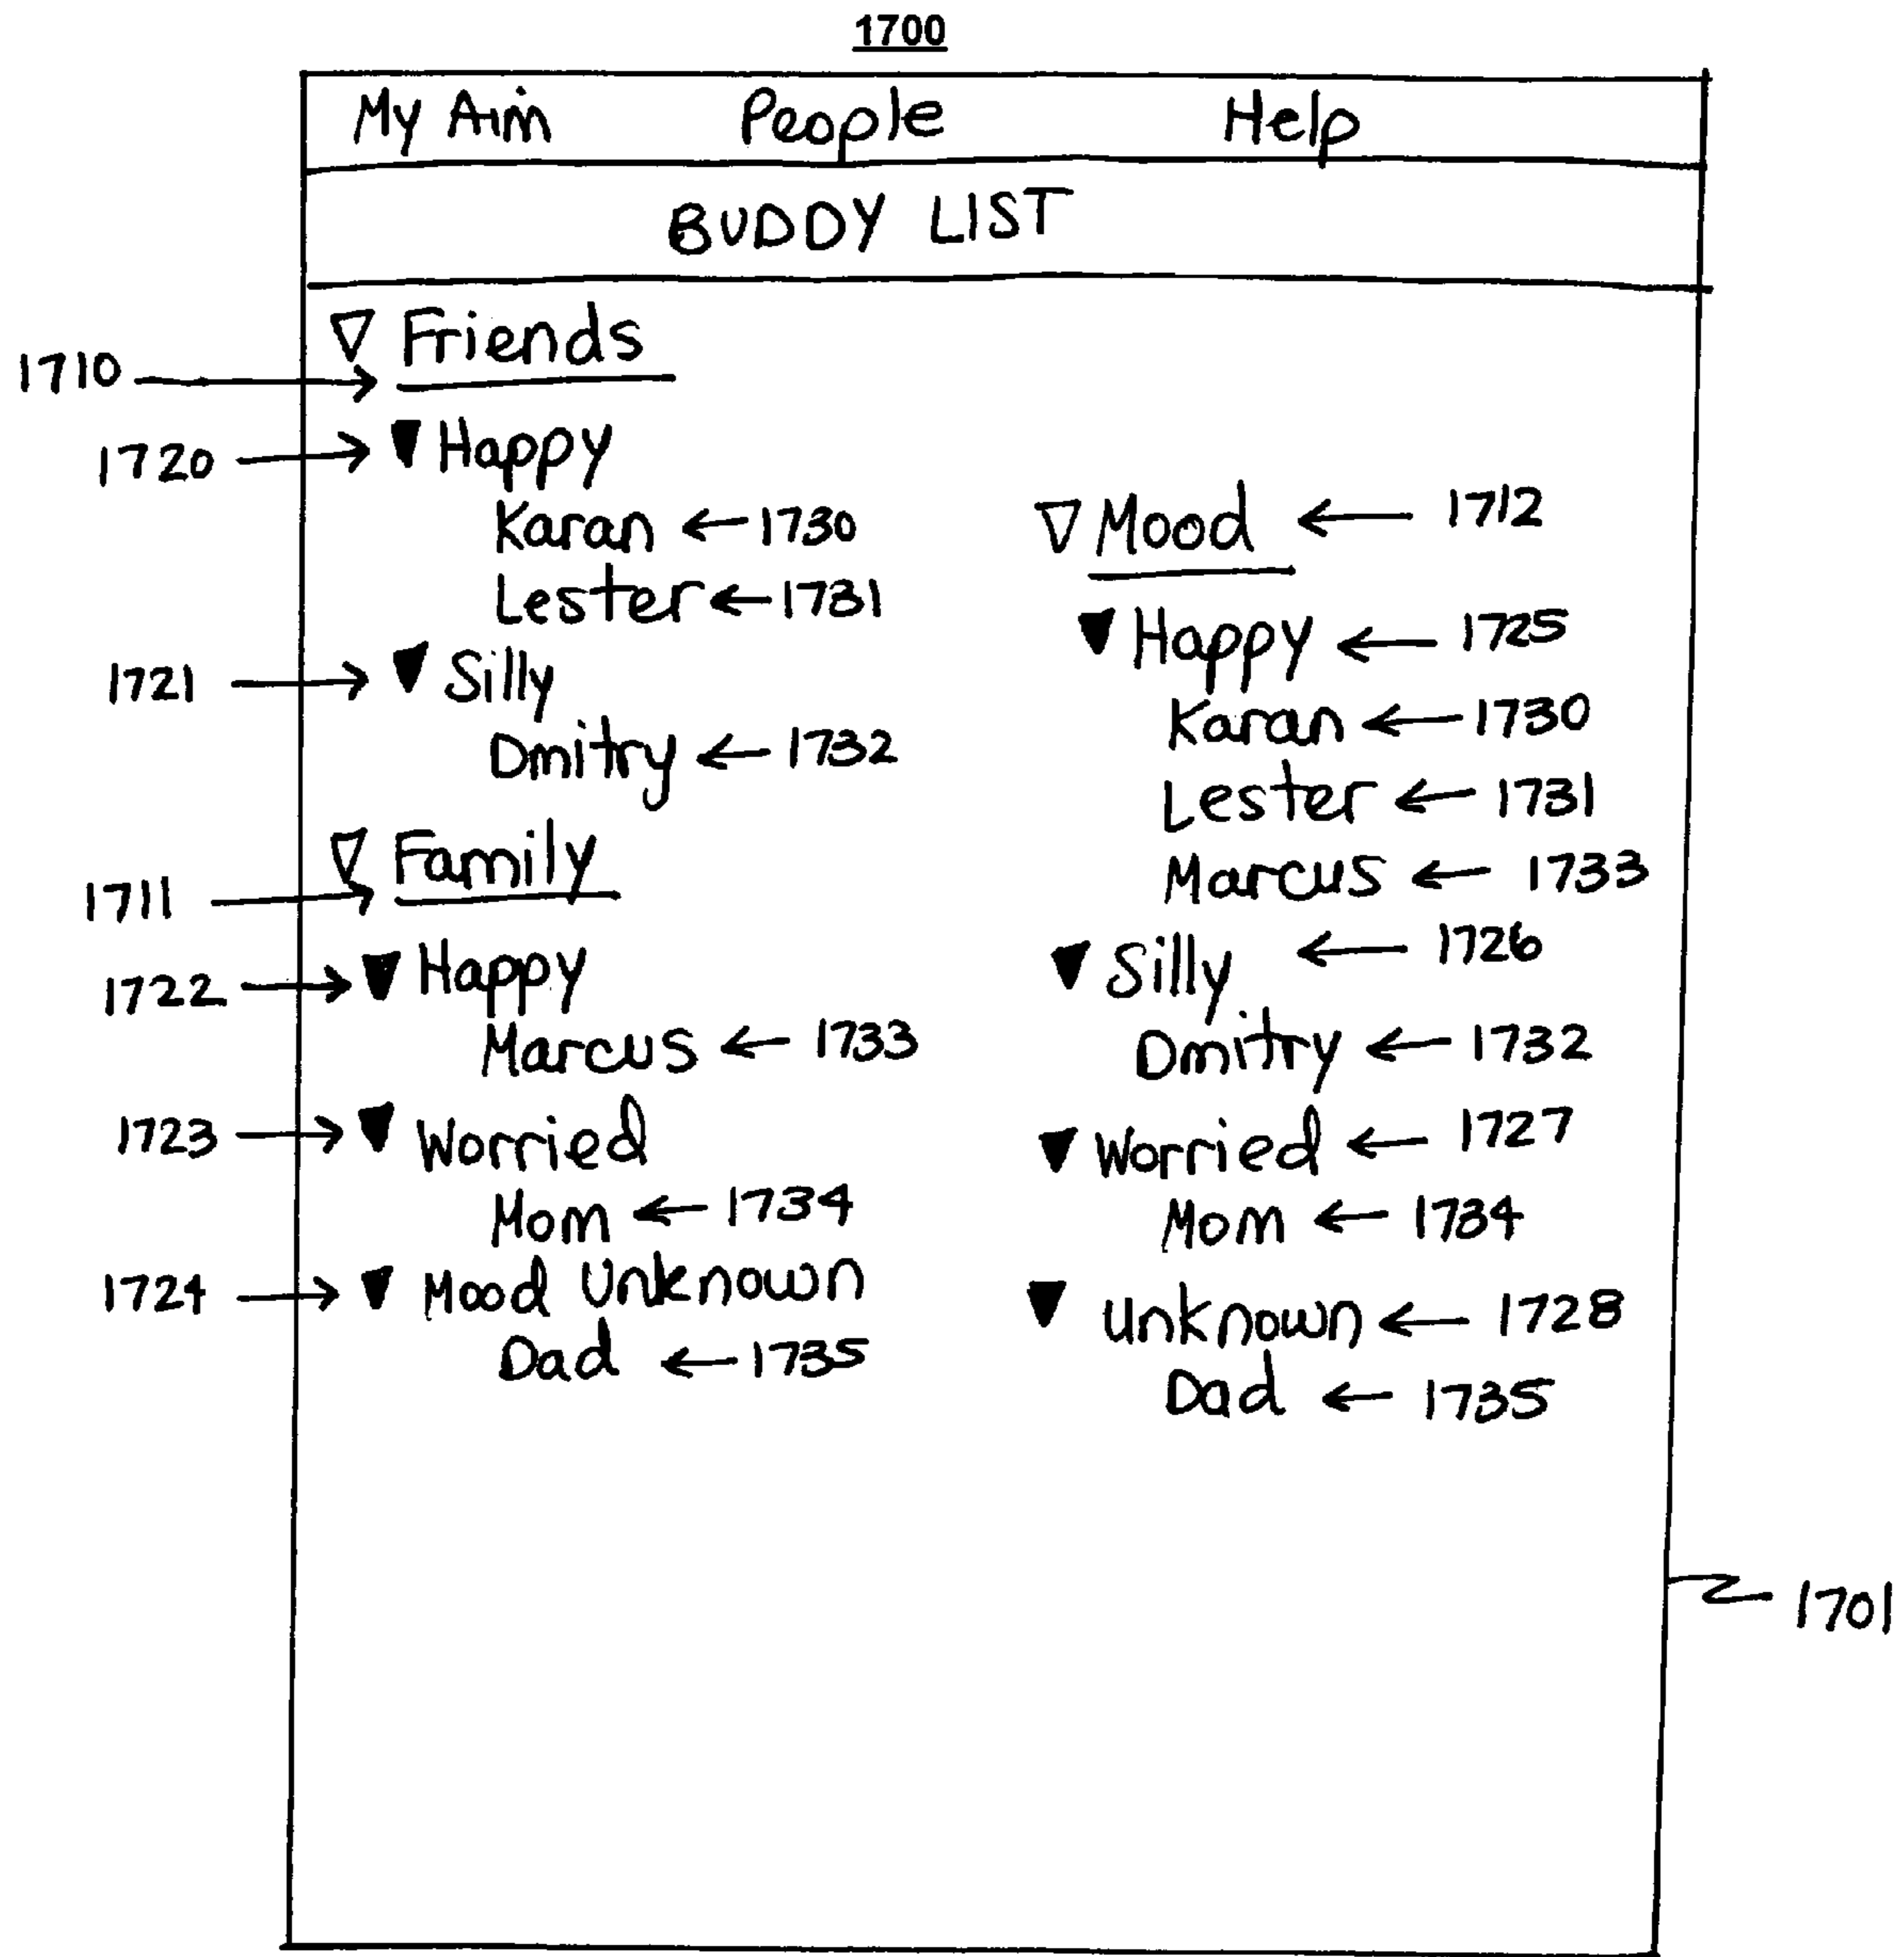 1700
My Aim People Help
BUDDY LIST
▽ Friends
1710
1720 ▼ Happy
Karan ← 1730
Lester ← 1731
1721 ▼ Silly
Dmitry ← 1732
▽ Family
1711
1722 ▼ Happy
Marcus ← 1733
1723 ▼ Worried
Mom ← 1734
1724 ▼ Mood Unknown
Dad ← 1735
▽ Mood ← 1712
▼ Happy ← 1725
Karan ← 1730
Lester ← 1731
Marcus ← 1733
▼ Silly ← 1726
Dmitry ← 1732
▼ Worried ← 1727
Mom ← 1734
▼ Unknown ← 1728
Dad ← 1735
1701